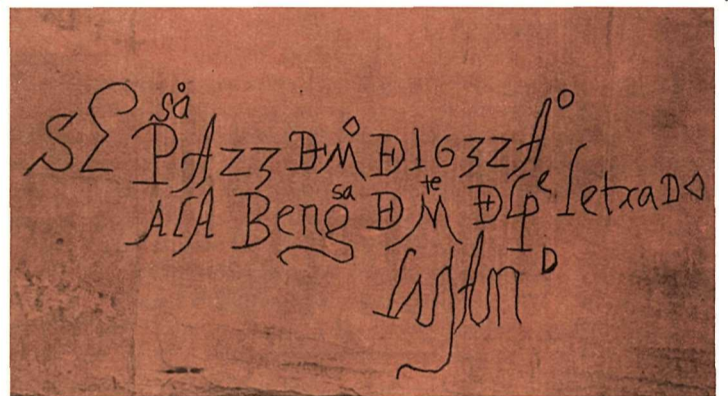 SE Pᵃˢᵒ A 23 DE Mᵒ DE 1632 Aᵒ
ALA Bengˢᵃ DE Mᵗᵉ DEL Pᵉ LetraDo
LujAn